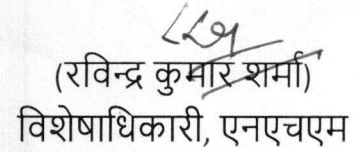 (रविन्द्र कुमार शर्मा)
विशेषाधिकारी, एनएचएम